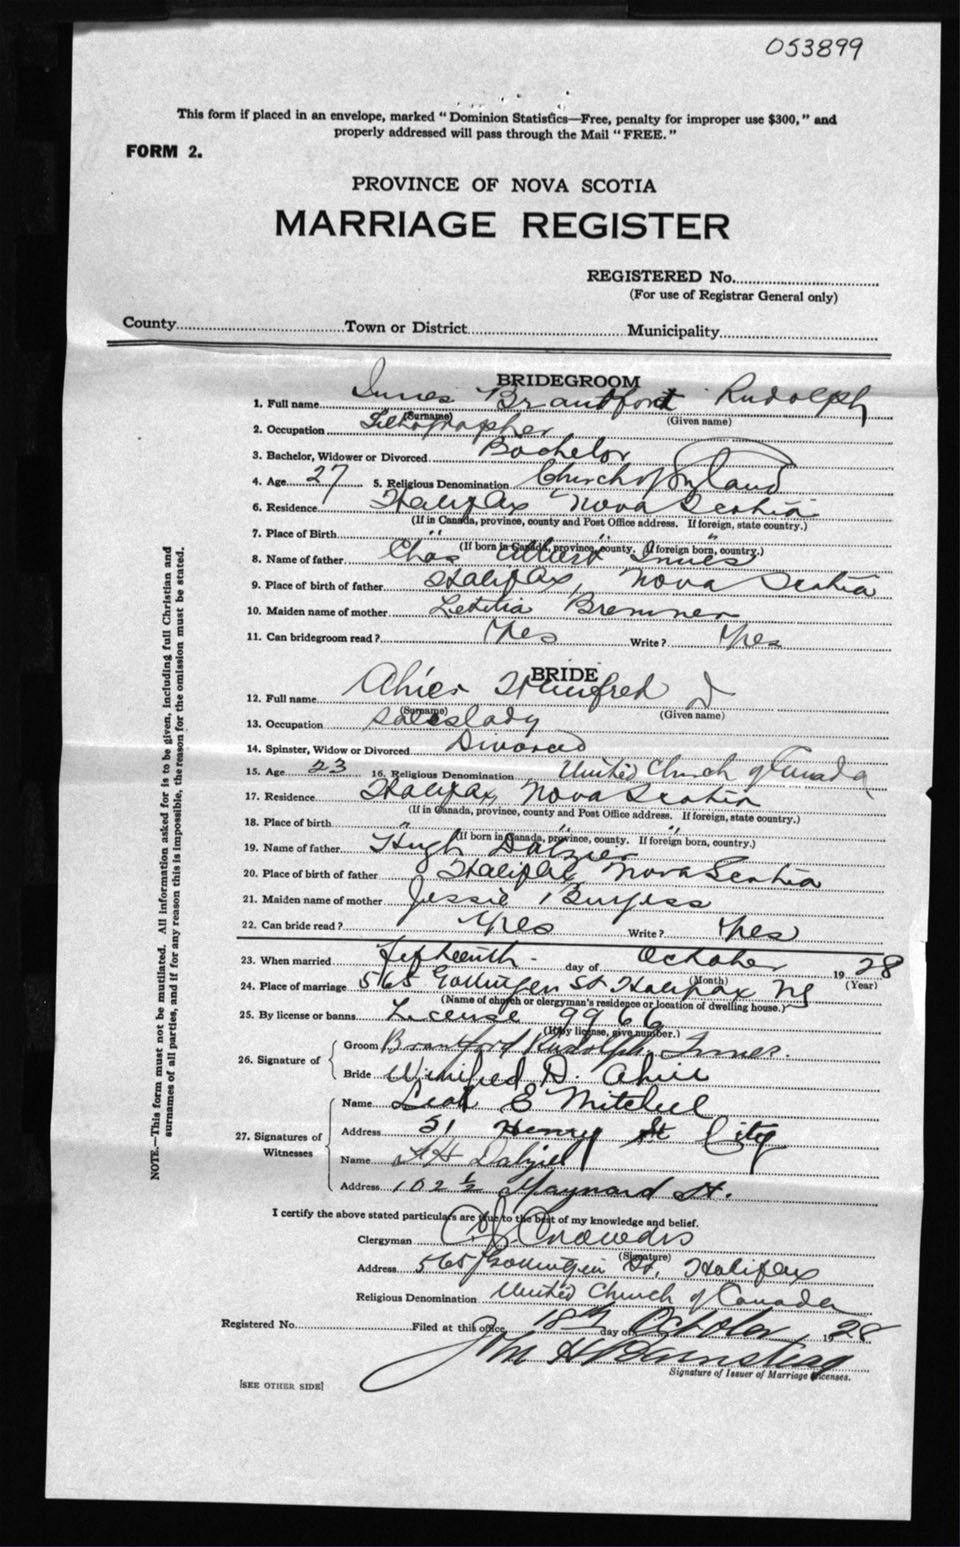 053899
This form if placed in an envelope, marked "Dominion Statistics—Free, penalty for improper use $300," and
properly addressed will pass through the Mail "FREE."
FORM 2.
PROVINCE OF NOVA SCOTIA
MARRIAGE REGISTER
REGISTERED No.
(For use of Registrar General only)
County Town or District Municipality
BRIDEGROOM
1. Full name Innes Brantford Rudolph
(Surname) (Given name)
2. Occupation Lithographer
3. Bachelor, Widower or Divorced Bachelor
4. Age 27 5. Religious Denomination Church of England
6. Residence Halifax Nova Scotia
(If in Canada, province, county and Post Office address. If foreign, state country.)
7. Place of Birth " " "
(If born in Canada, province, county. If foreign born, country.)
8. Name of father Chas Albert Innes
9. Place of birth of father Halifax, Nova Scotia
10. Maiden name of mother Letitia Bremner
11. Can bridegroom read? Yes Write? Yes
BRIDE
12. Full name Ahier Winifred D
(Surname) (Given name)
13. Occupation Saleslady
14. Spinster, Widow or Divorced Divorced
15. Age 23 16. Religious Denomination United Church of Canada
17. Residence Halifax, Nova Scotia
(If in Canada, province, county and Post Office address. If foreign, state country.)
18. Place of birth " " "
(If born in Canada, province, county. If foreign born, country.)
19. Name of father Hugh Dalziel
20. Place of birth of father Halifax Nova Scotia
21. Maiden name of mother Jessie Burgess
22. Can bride read? Yes Write? Yes
23. When married Fifteenth day of October 1928
(Month) (Year)
24. Place of marriage 565 Gottingen St Halifax NS
(Name of church or clergyman's residence or location of dwelling house.)
25. By license or banns License 9966
(If by license, give number.)
26. Signature of
Groom Brantford Rudolph Innes.
Bride Winifred D. Ahier
27. Signatures of Witnesses
Name E Mitchell
Address 51 Henry St City
Name H Dalziel
Address 102 ½ Maynard St.
I certify the above stated particulars are true to the best of my knowledge and belief.
Clergyman Crowdis
(Signature)
Address 565 Gottingen St, Halifax
Religious Denomination United Church of Canada
Registered No. Filed at this office 18th day of October 1928
John H
Signature of Issuer of Marriage Licenses.
[SEE OTHER SIDE]
NOTE.—This form must not be mutilated. All information asked for is to be given, including full Christian and
surnames of all parties, and if for any reason this is impossible, the reason for the omission must be stated.